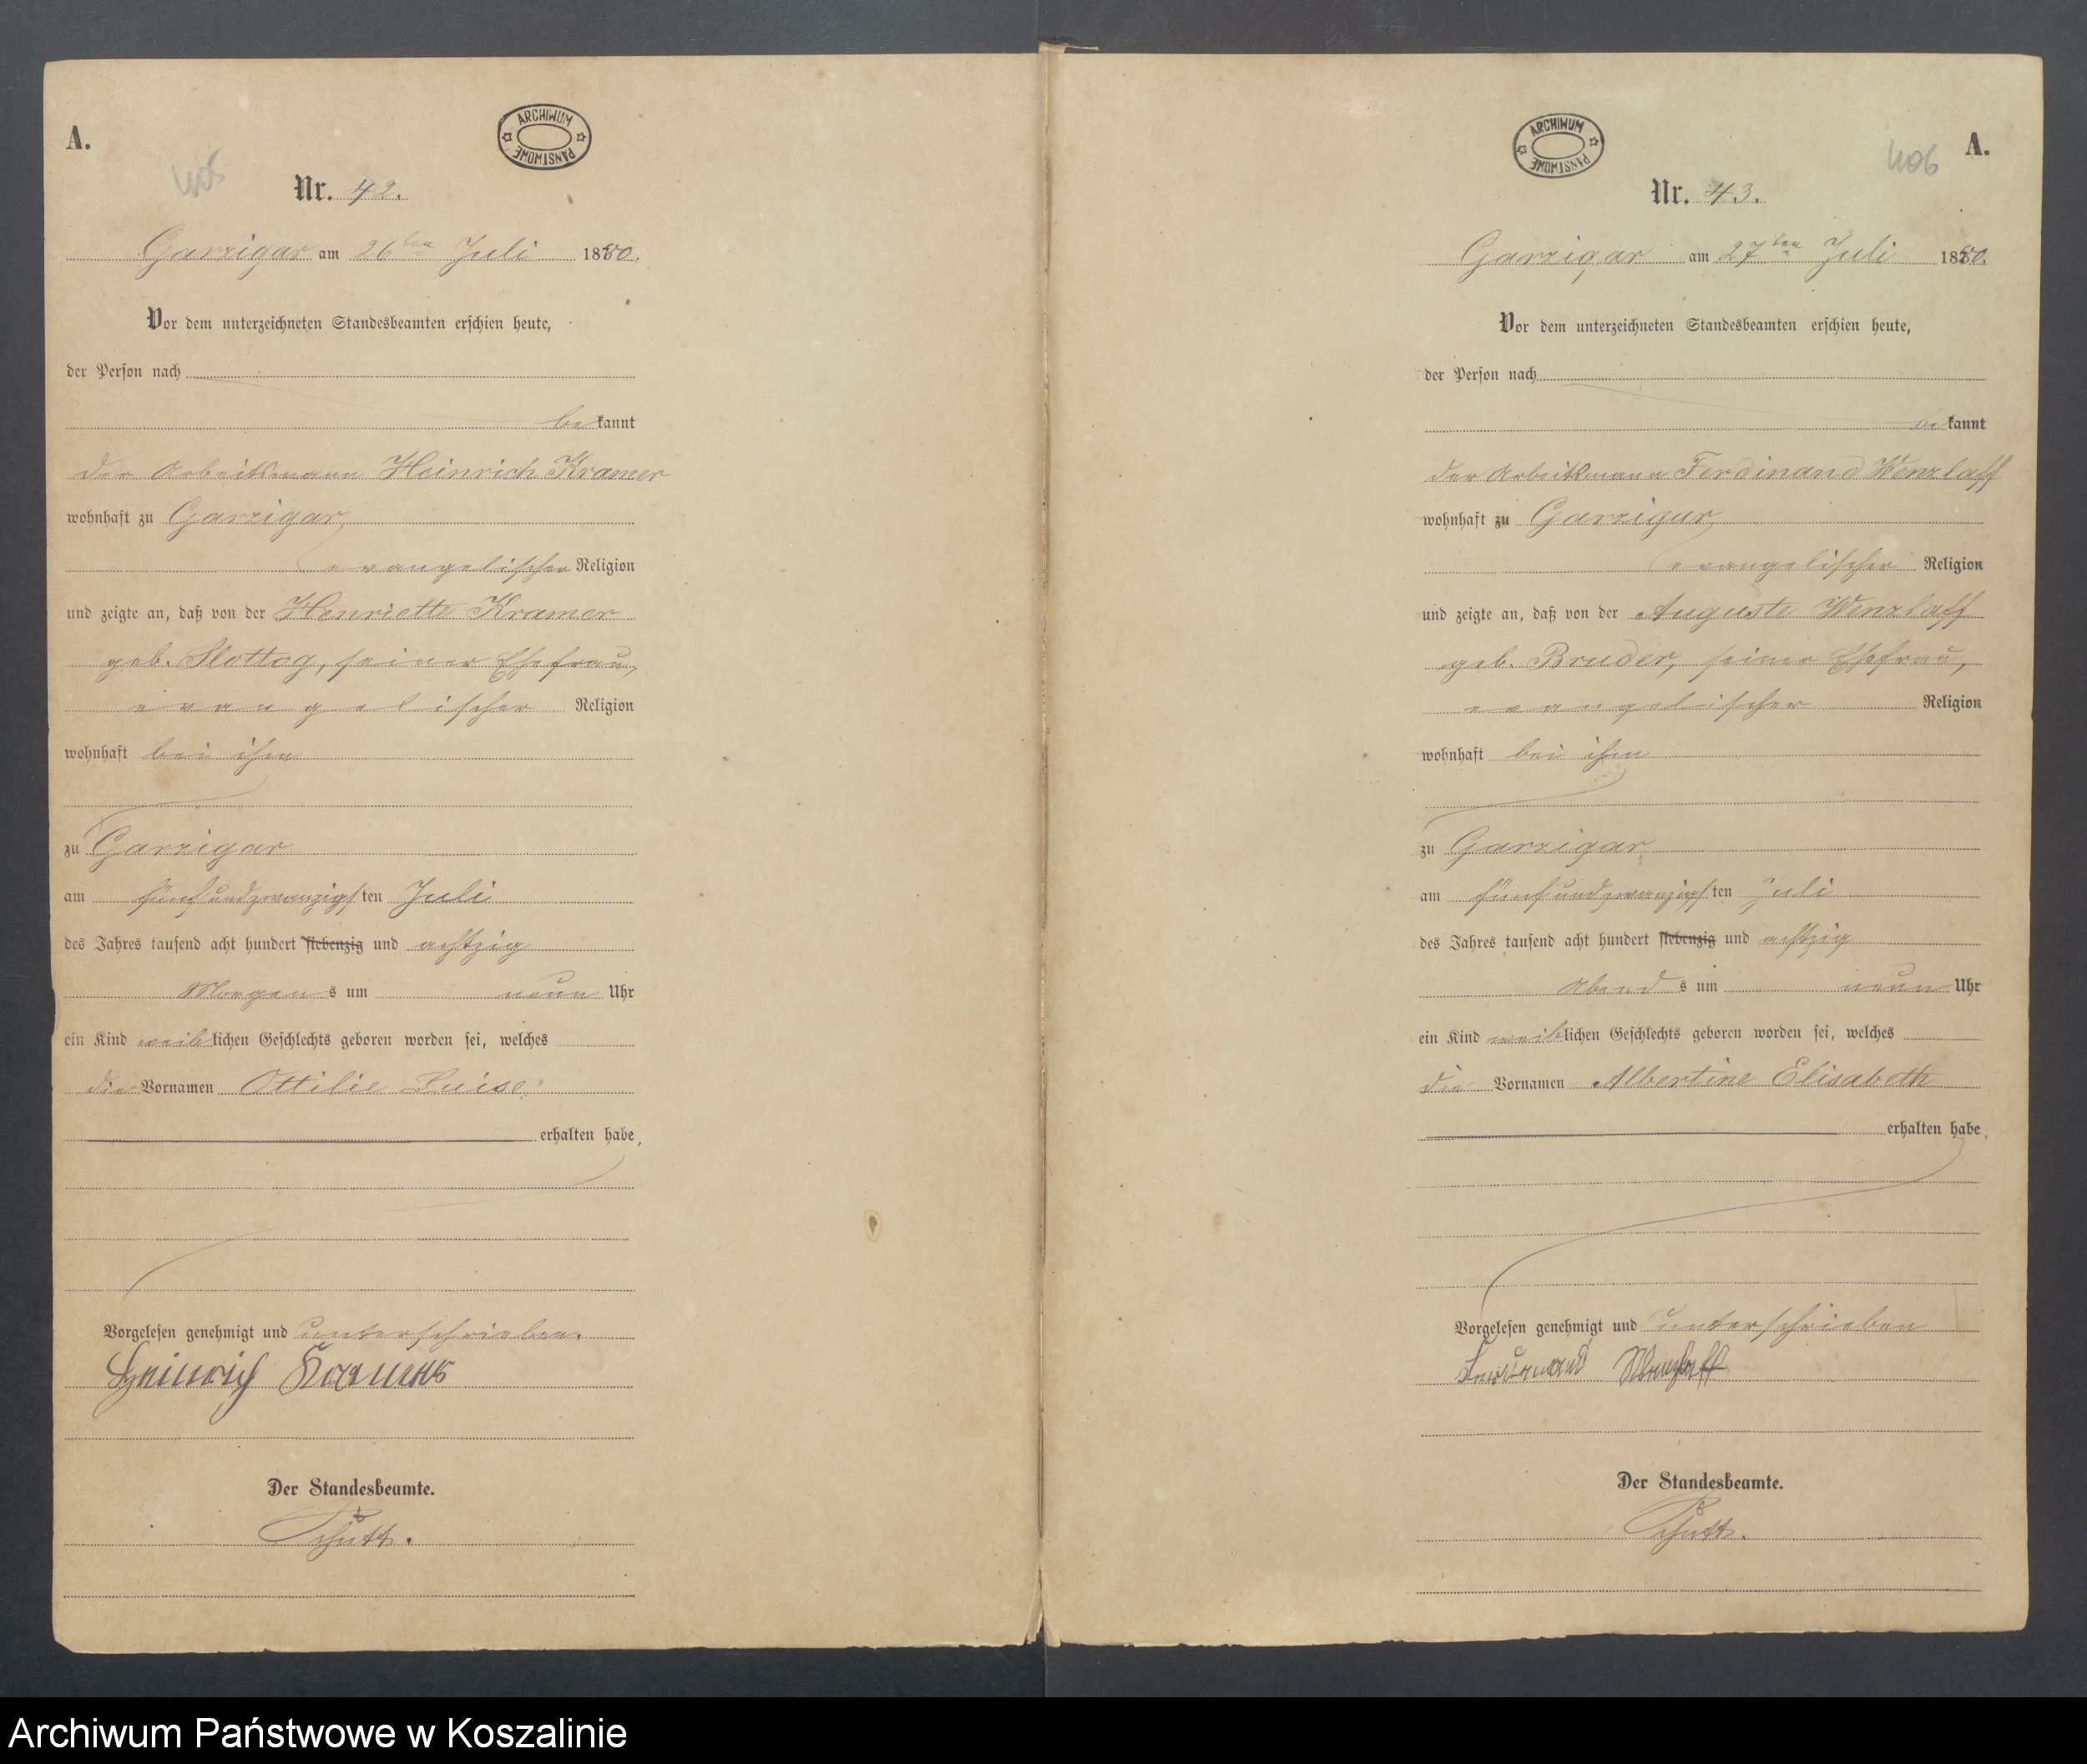 A.
ARCHIWUM PAŃSTWOWE
405
Nr. 42.
Garzigar am 26ten Juli 1880.
Vor dem unterzeichneten Standesbeamten erschien heute,
der Person nach
bekannt
der Arbeitsmann Heinrich Kramer
wohnhaft zu Garzigar,
evangelischer Religion
und zeigte an, daß von der Henriette Kramer
geb. Slottog, seiner Ehefrau,
evangelischer Religion
wohnhaft bei ihm
zu Garzigar
am fünfundzwanzigsten Juli
des Jahres tausend acht hundert siebenzig und achtzig
Morgens um neun Uhr
ein Kind weiblichen Geschlechts geboren worden sei, welches
die Vornamen Ottilie Luise
erhalten habe,
Vorgelesen genehmigt und unterschrieben.
Heinrich Kramer
Der Standesbeamte.
Schütt.
ARCHIWUM PAŃSTWOWE
406
A.
Nr. 43.
Garzigar am 27ten Juli 1880.
Vor dem unterzeichneten Standesbeamten erschien heute,
der Person nach
bekannt
der Arbeitsmann Ferdinand Wenzlaff
wohnhaft zu Garzigar,
evangelischer Religion
und zeigte an, daß von der Auguste Wenzlaff
geb. Bruder, seiner Ehefrau,
evangelischer Religion
wohnhaft bei ihm
zu Garzigar
am fünfundzwanzigsten Juli
des Jahres tausend acht hundert siebenzig und achtzig
Abends um neun Uhr
ein Kind weiblichen Geschlechts geboren worden sei, welches
die Vornamen Albertine Elisabeth
erhalten habe,
Vorgelesen genehmigt und unterschrieben
Ferdinand Wenzlaff
Der Standesbeamte.
Schütt.
Archiwum Państwowe w Koszalinie